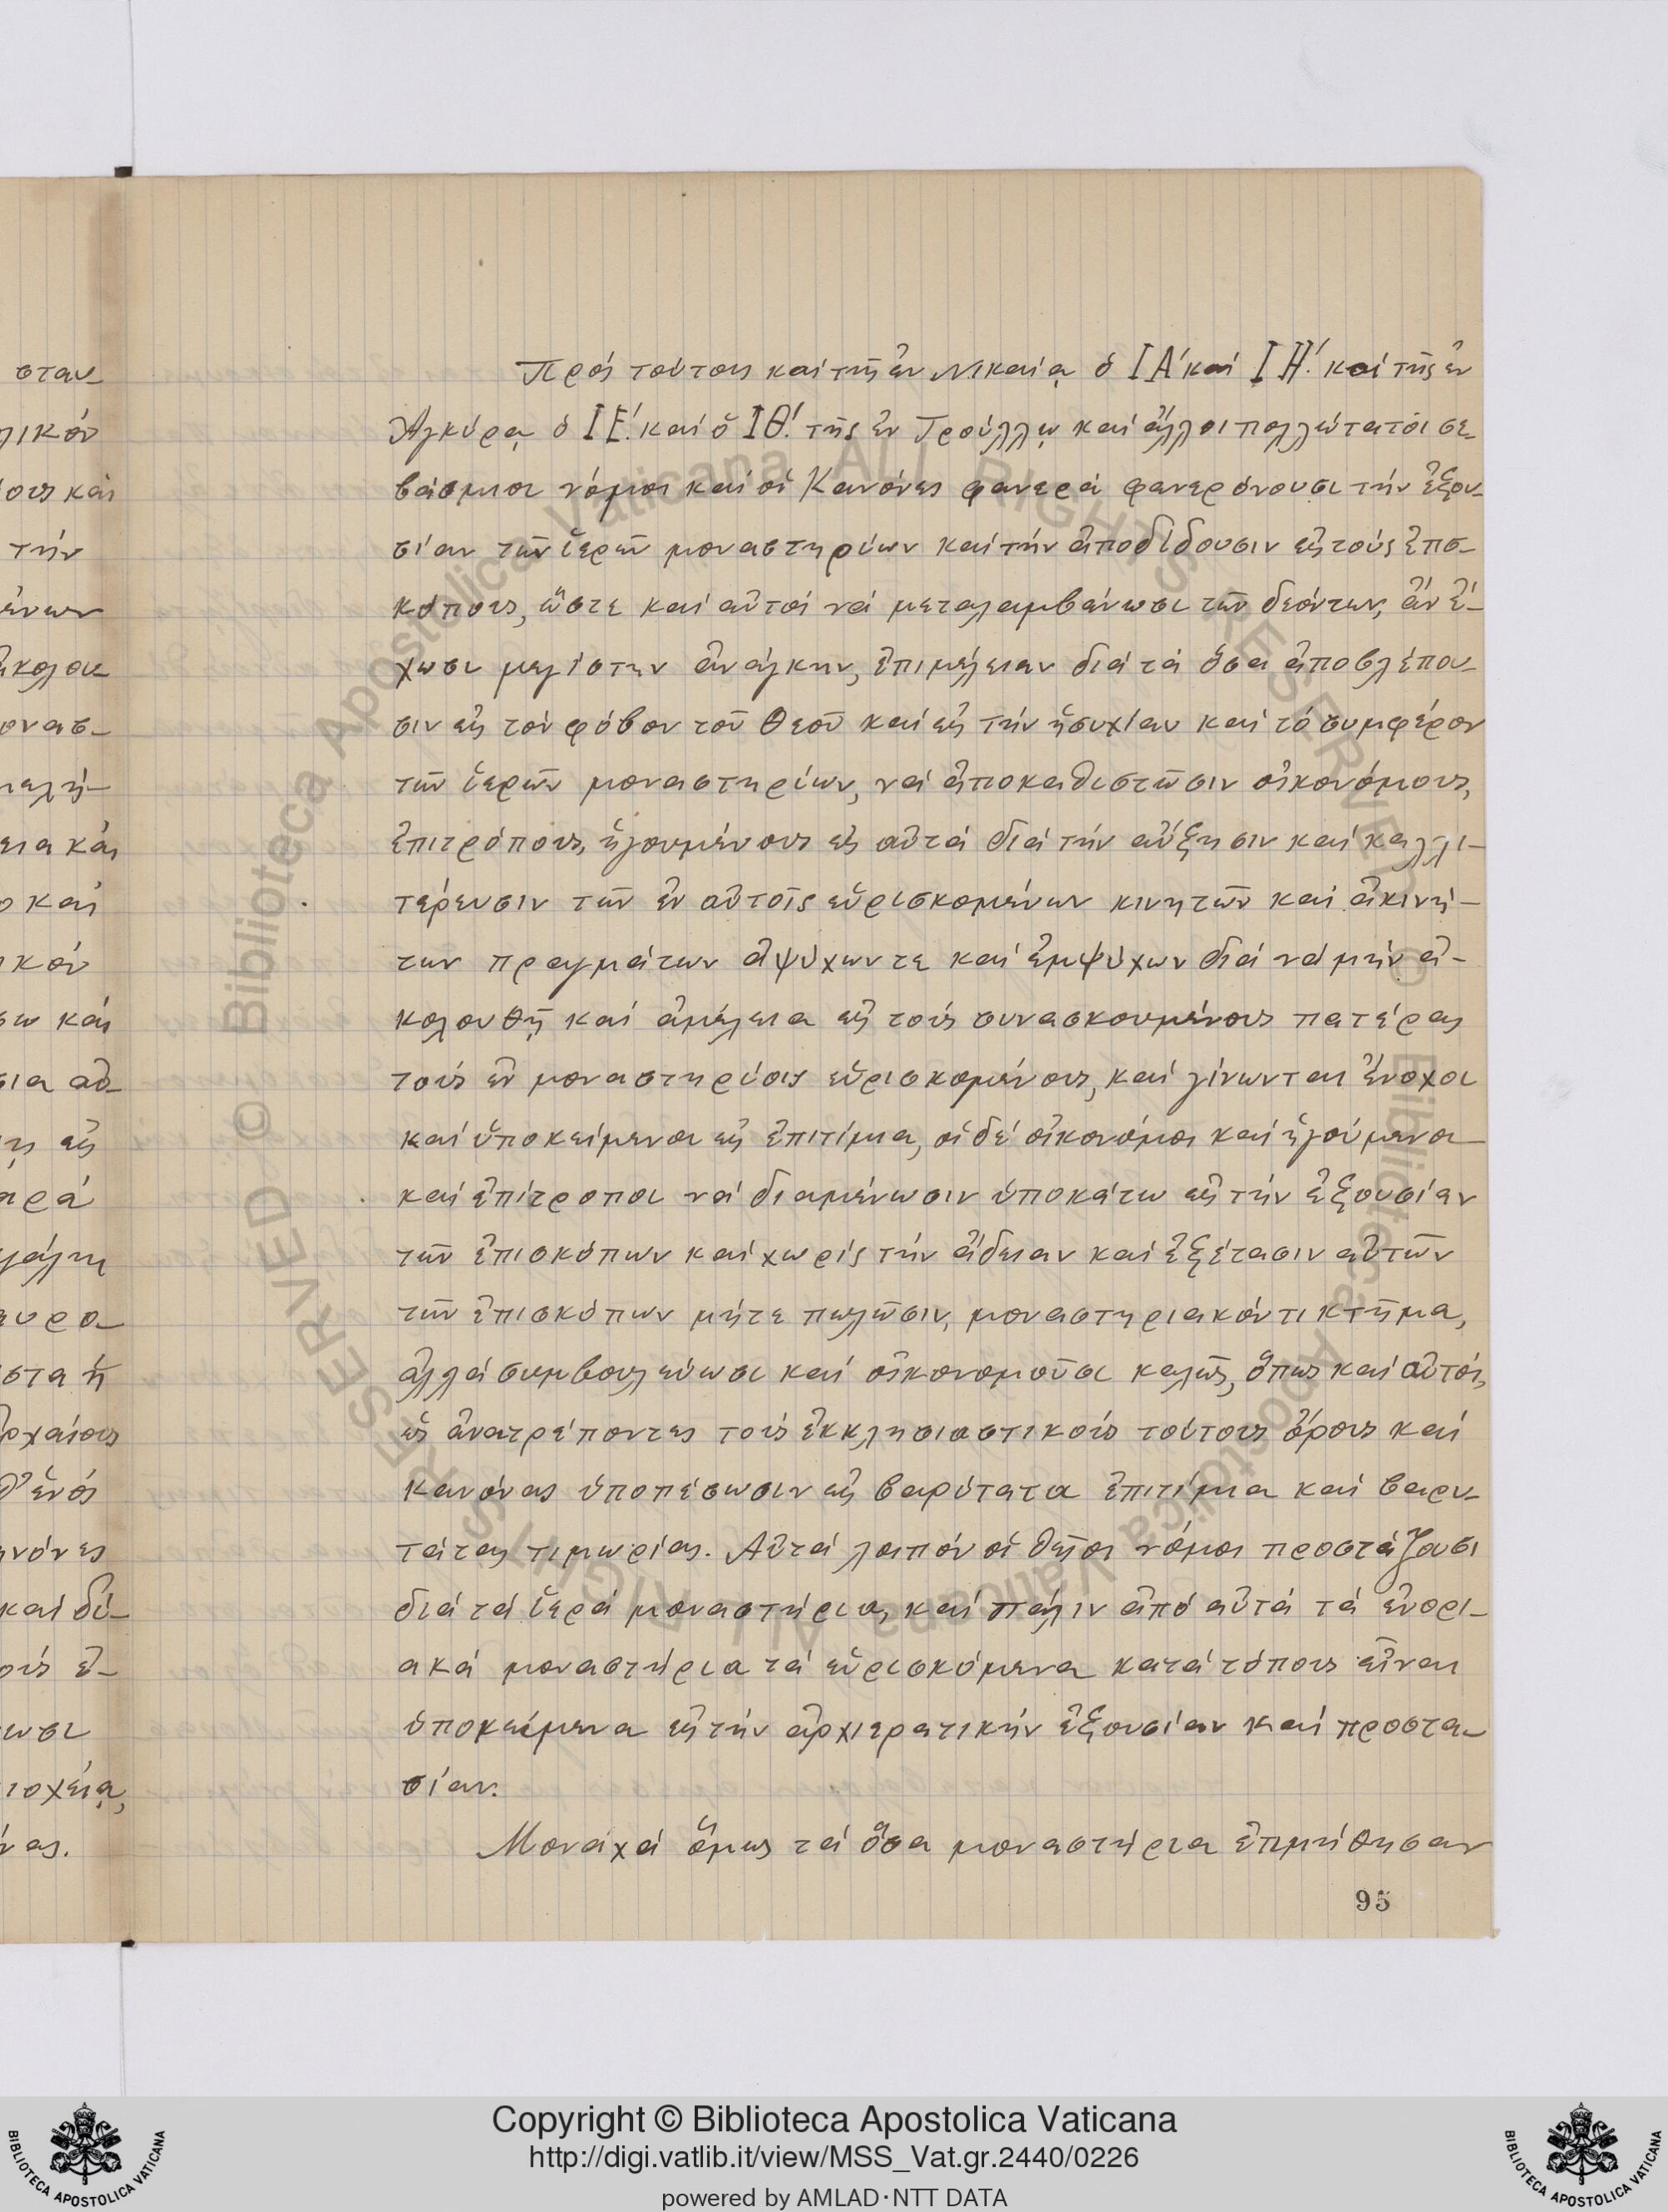 Πρός τούτοις καί τῆς ἐν Νικαίᾳ ὁ ΙΑ΄ καί ΙΗ΄. καί τῆς ἐν
Ἀγκύρᾳ ὁ ΙΕ΄. καί ὁ ΙΘ΄. τῆς ἐν Τρούλλῳ καί ἄλλοι πολλώτατοι σε-
βάσμιοι νόμοι καί οἱ Κανόνες φανερά φανερόνουσι τήν ἐξου-
σίαν τῶν ἱερῶν μοναστηρίων καί τήν ἀποδίδουσιν εἰς τούς ἐπισ-
κόπους, ὥστε καί αὐτοί νά μεταλαμβάνωσι τῶν δεόντων, ἄν ἔ-
χωσι μεγίστην ἀνάγκην, ἐπιμέλειαν διά τά ὅσα ἀποβλέπου-
σιν εἰς τόν φόβον τοῦ Θεοῦ καί εἰς τήν ἡσυχίαν καί τό συμφέρον
τῶν ἱερῶν μοναστηρίων, νά ἀποκαθιστῶσιν οἰκονόμους,
ἐπιτρόπους, ἡγουμένους εἰς αὐτά διά τήν αὔξησιν καί καλλι-
τέρευσιν τῶν ἐν αὐτοῖς εὑρισκομένων κινητῶν καί ἀκινή-
των πραγμάτων ἀψύχων τε καί ἐμψύχων διά νά μήν ἀ-
κολουθῇ καί ἀμέλεια εἰς τούς συνασκουμένους πατέρας
τούς ἐν μοναστηρίοις εὑρισκομένους, καί γίνωνται ἔνοχοι
καί ὑποκείμενοι εἰς ἐπιτίμια, οἱ δέ οἰκονόμοι καί ἡγούμενοι
καί ἐπίτροποι νά διαμένωσιν ὑποκάτω εἰς τήν ἐξουσίαν
τῶν ἐπισκόπων καί χωρίς τήν ἄδειαν καί ἐξέτασιν αὐτῶν
τῶν ἐπισκόπων μήτε πωλῶσιν, μοναστηριακόν τι κτῆμα,
ἀλλά συμβουλεύωσι καί οἰκονομοῦσι καλῶς, ὅπως καί αὐτοί,
ὡς ἀνατρέποντες τούς ἐκκλησιαστικούς τούτους ὅρους καί
κανόνας ὑποπέσωσιν εἰς βαρύτατα ἐπιτίμια καί βαρυ-
τάτας τιμωρίας. Αὐτά λοιπόν οἱ θεῖοι νόμοι προστάζουσι
διά τά ἱερά μοναστήρια, καί πάλιν ἀπό αὐτά τά ἐνορι-
ακά μοναστήρια τά εὑρισκόμενα κατά τόπους εἶναι
ὑποκείμενα εἰς τήν ἀρχιερατικήν ἐξουσίαν καί προστα-
σίαν.
Μοναχά ὅμως τά ὅσα μοναστήρια ἐτιμήθησαν
95
Copyright © Biblioteca Apostolica Vaticana
http://digi.vatlib.it/view/MSS_Vat.gr.2440/0226
powered by AMLAD·NTT DATA